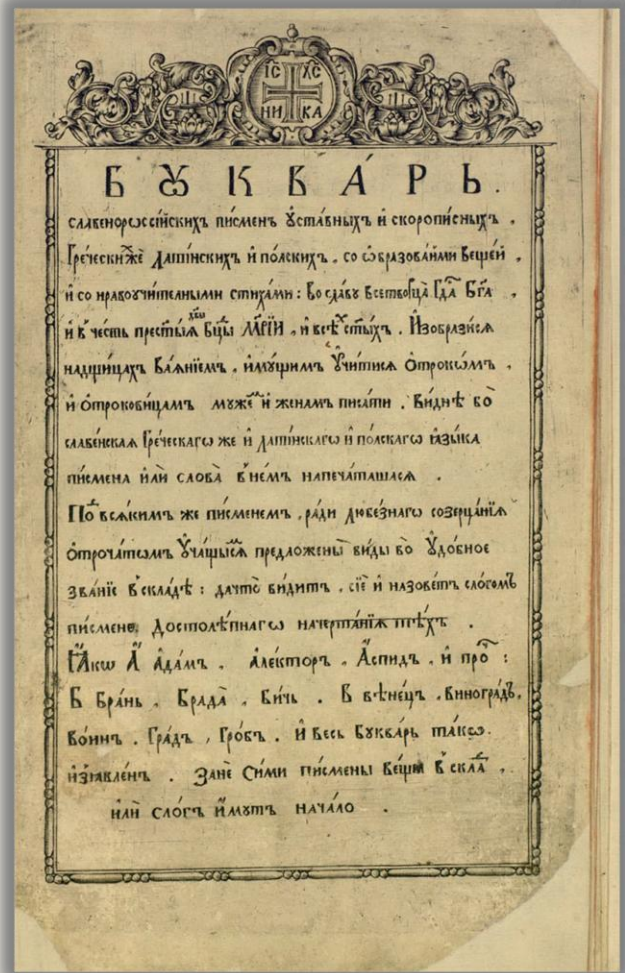 ІС ХС
НИ КА
БꙊКВА́РЬ.
славенорѡссі́йскихъ пи́сменъ ᲂу҆ста́вныхъ и҆ скоропи́сныхъ ,
Гре́ческиⷯже Лати́нскихъ и҆ по́лскихъ , со ѡ҆бразова́йми веще́й ,
и҆ со нравоꙋчи́телными стиха́ми : во сла́вꙋ всетво́рца̀ Гдⷭ҇а Бг҃а ,
и҆ в̾ че́сть прест҃ы́ѧ дв҃ы Бц҃ы МР҃І́И , и҆ всѣ́ⷯ ст҃ы́хъ . И҆зобрази́сѧ
на дщи́цахъ ваѧ́нїемъ , и҆мꙋ́щимъ ᲂу҆чи́тисѧ ѻ҆́трокѡмъ ,
и҆ ѻ҆трокови́цамъ мꙋже́ⷨ и҆ жена́мъ писа́ти . Ви́днѣ бо
славе́нскаѧ Гре́ческагѡ же и҆ лати́нскагѡ и҆ по́лскагѡ ꙗ҆зы́ка
пи́смена и҆лѝ слова̀ в̾ не́мъ напеча́ташасѧ .
Поⷣ всѧ́кимъ же пи́сменемъ , ра́ди любе́знагѡ созерца́нїѧ
ѻ҆троча́тѡмъ ᲂу҆ча́щымсѧ предложены̀ ви́ды во ᲂу҆до́бное
зва́нїе в̾ скла́дѣ : да что̀ ви́дитъ , сїѐ и҆ назове́тъ сло́гомъ
пи́смене, достолѣ́пнагѡ начерта́нїѧ тѣ́хъ .
Ꙗ҆́кѡ А҆ А҆да́мъ , А҆ле́кторъ , А҆́спидъ , и҆ про́ⷱ :
Б Бра́нь , Брада̀ , Би́чь . В вѣне́цъ , виногра́дъ,
во́инъ . Гра́дъ , Гро́бъ . И҆ весь Бꙋква́рь та́кѡ
и҆з̾ѧвле́нъ . Занѐ си́ми пи́смены ве́щи в̾ скла́ⷣ ,
и҆лѝ сло́гъ и҆́мꙋтъ нача́ло .